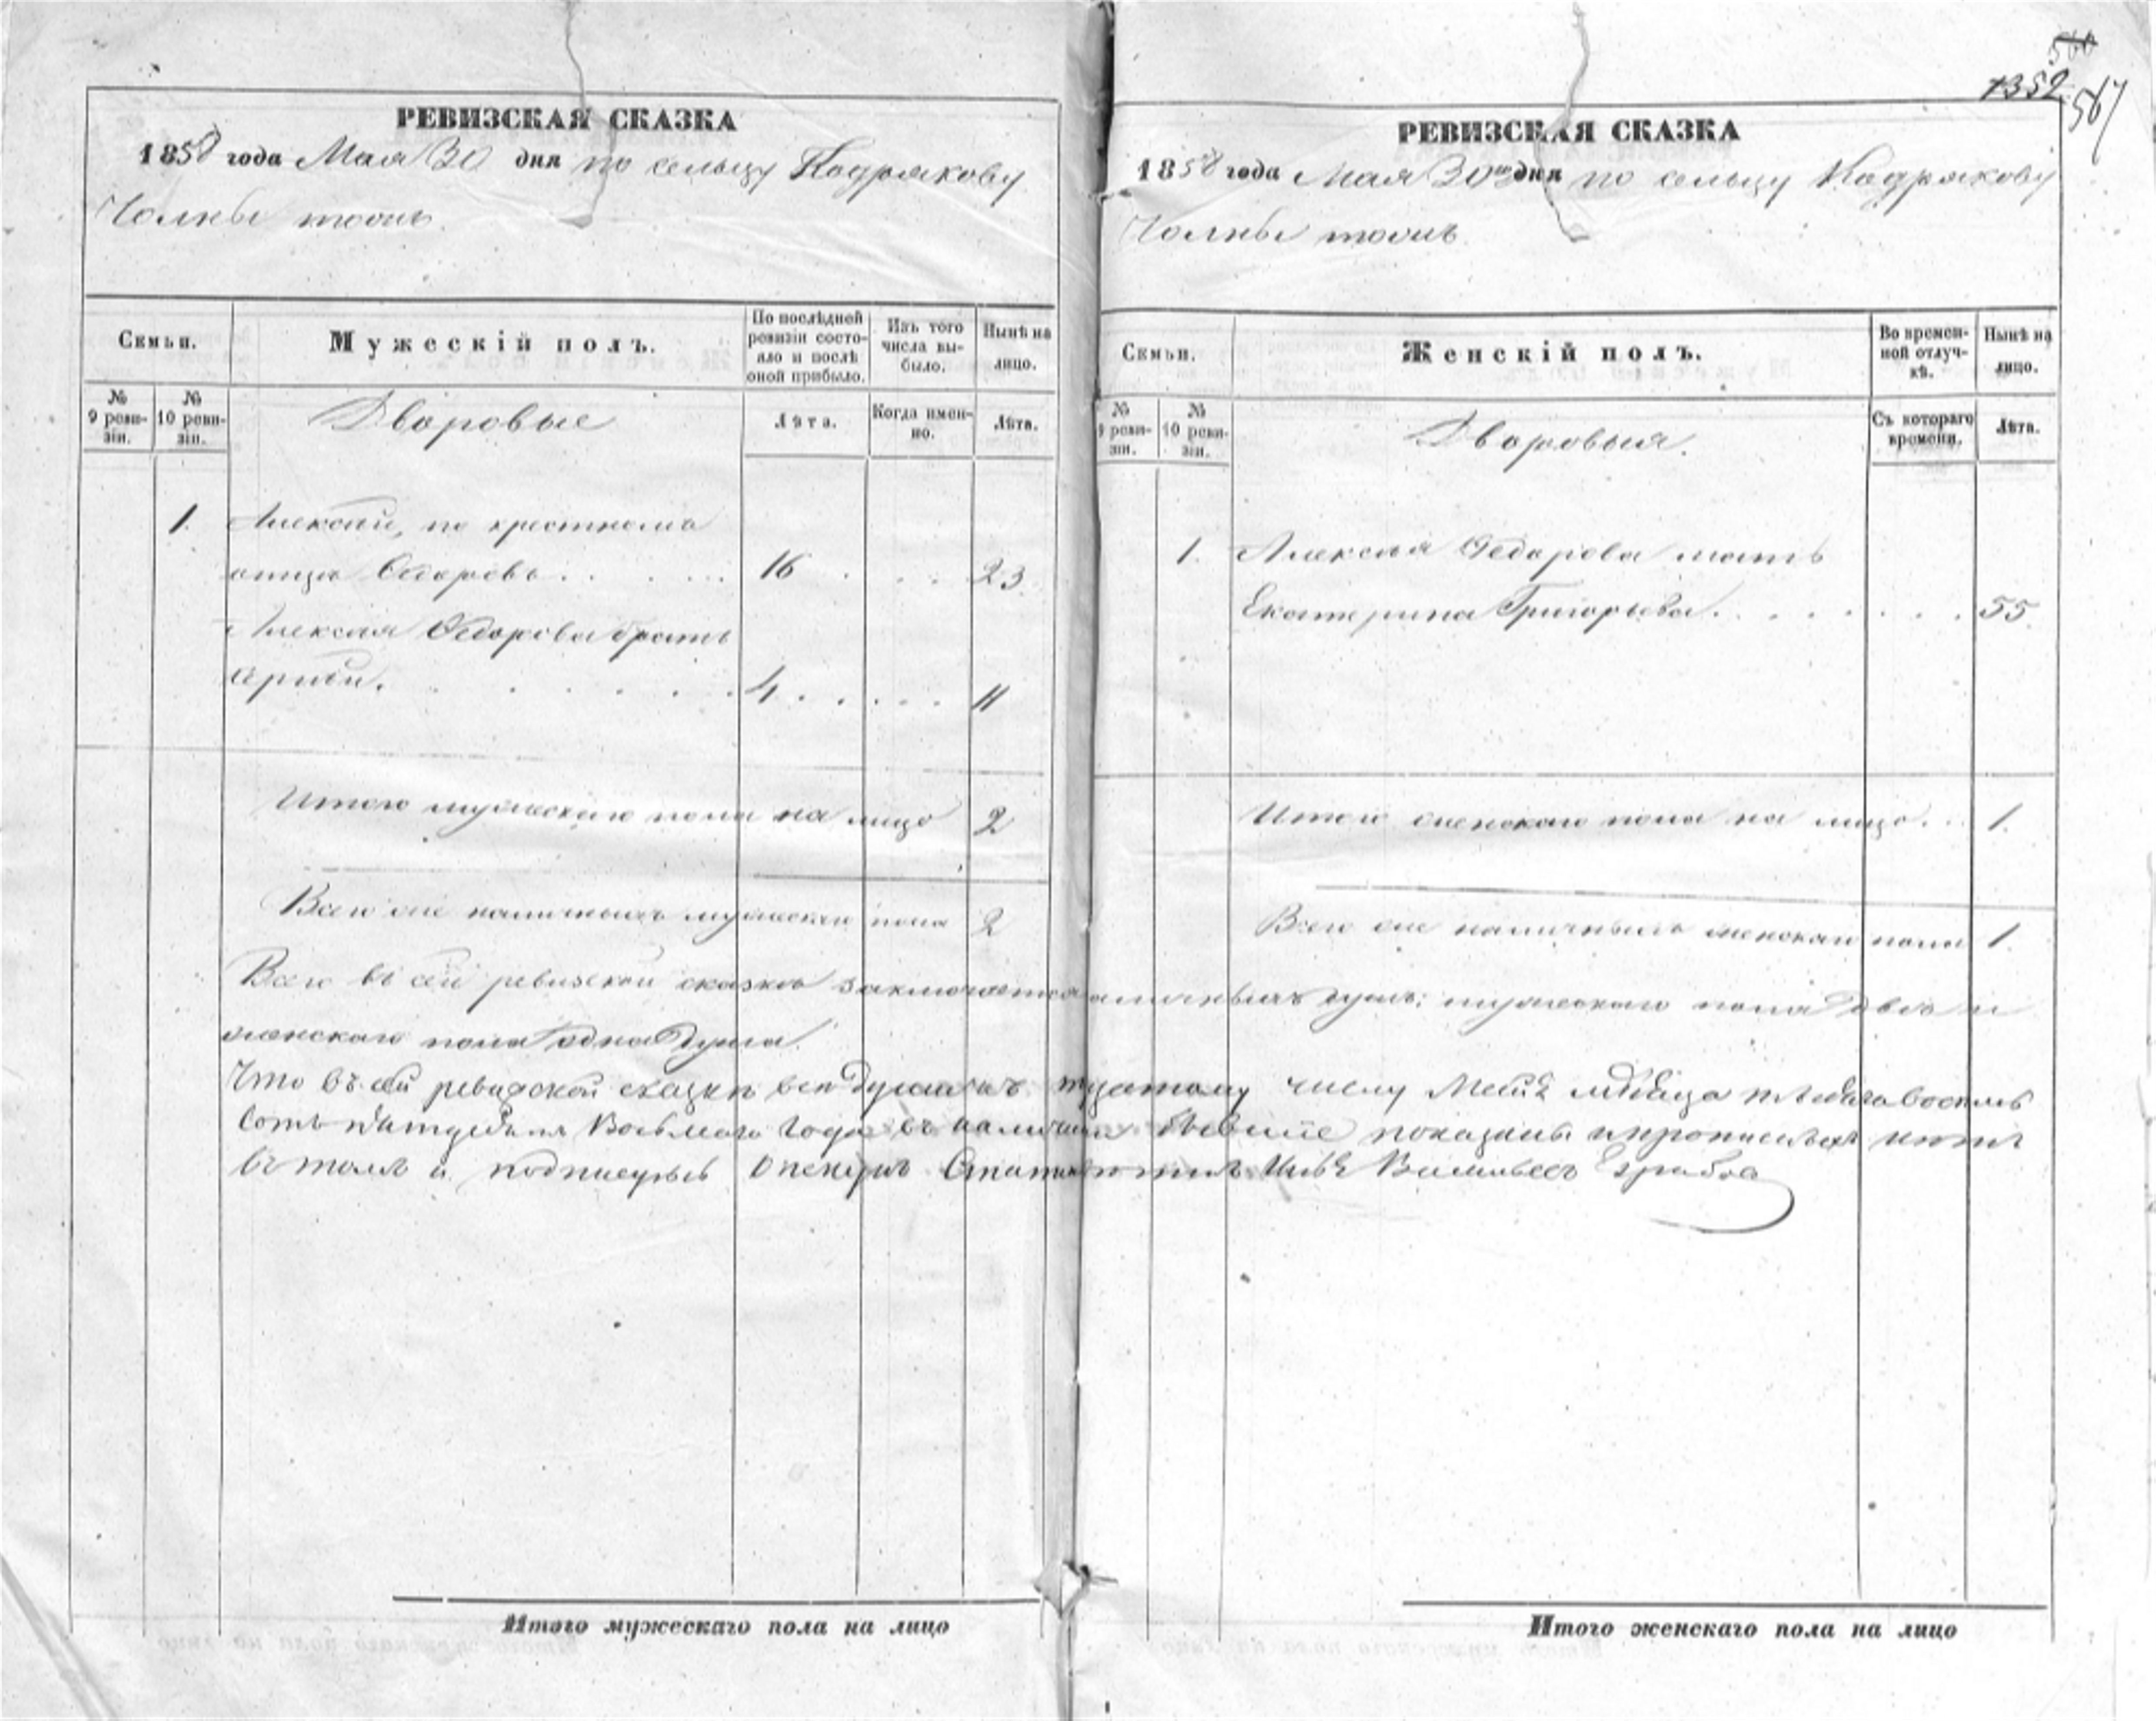 560
1352
567
РЕВИЗСКАЯ СКАЗКА
1858 года Мая 30 дня по сельцу Кадрякову
Чолны тожъ.
Семьи.
Мужескій полъ.
По послѣдней ревизіи состояло и послѣ оной прибыло.
Изъ того числа выбыло.
Нынѣ на лицо.
№ 9 ревизіи.
№ 10 ревизіи.
Дворовые
Лѣта.
Когда именно.
Лѣта.
1. Алексѣй, по крестному
отцу Ѳедоровъ . . . . . 16 . . . . 23.
Алексѣя Ѳедорова братъ
Сергѣй. . . . . . . 4 . . . . . 11
Итого мужескаго пола на лицо 2
Всего же наличныхъ мужескаго пола 2
РЕВИЗСКАЯ СКАЗКА
1858 года Мая 30го дня по сельцу Кадрякову
Чолны тожъ.
Семьи.
Женскій полъ.
Во временной отлучкѣ.
Нынѣ на лицо.
№ 9 ревизіи.
№ 10 ревизіи.
Дворовыя.
Съ котораго времени.
Лѣта.
1. Алексѣя Ѳедорова мать
Екатерина Григорьева. . . . . . . . 55.
Итого женскаго пола на лицо. . . 1.
Всего же наличныхъ женскаго пола 1.
Всего въ сей ревизской сказкѣ заключается наличныхъ душъ: мужескаго пола двѣ и
женскаго пола одна душа.
Что въ сей ревизской сказки все душамъ къ числу
сотъ пятдесят Восьмого Года въ наличии бывшіе показаны и прописныхъ нѣтъ
въ томъ и подписуюсь Опекунъ Васильевъ
Итого мужескаго пола на лицо
Итого женскаго пола на лицо